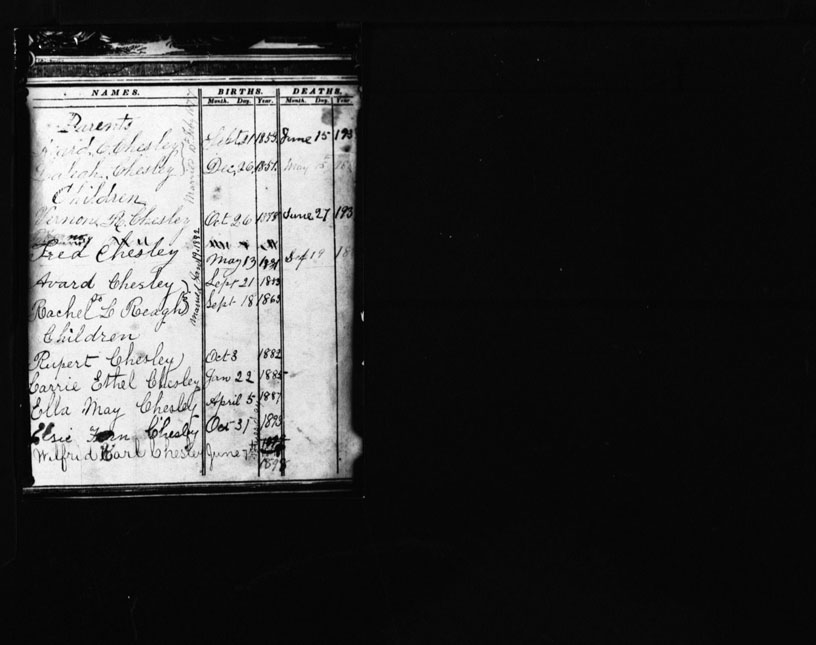 NAMES. BIRTHS. DEATHS.
Month. Day. Year. Month. Day. Year.
Parents
Avard C. Chesley Sept 21 1853 June 15 193
Chesley Dec. 26 1851 May
Married Feb
Children
Vernon R. Chesley Oct 26 June 27 193
Fred Chesley May 13 1881 Sep 19 18
Married Jan 1882
Avard Chesley Sept 21 1853
to
Rachel L Reagh Sept 18 1863
Children
Rupert Chesley Oct 8 1882
Carrie Ethel Chesley Jan 22 1885
Ella May Chesley April 5 1887
Elsie Fern Chesley Oct 31 1893
Wilfrid Karl Chesley June 7th